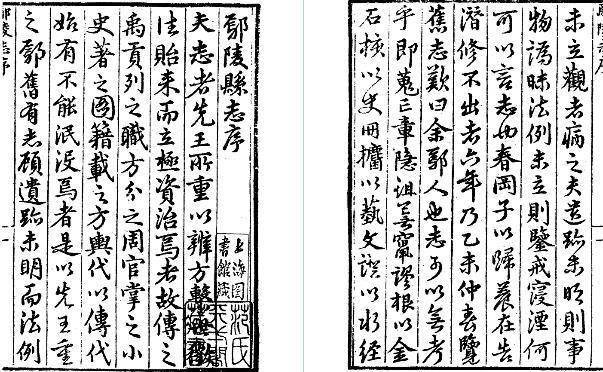 鄢陵縣志序
夫志者先王所重以辨方繫
法貽来而立極資治焉者故傳之
禹貢列之職方分之周官掌之小
史著之圖籍載之方輿代以傳代
始有不能泯没焉者是以先王重
之鄢舊有志顧遺跡未明而法例
鄢陵志序
未立觀者病之夫遺跡未明則事
物譌昧法例未立則鑒戒寖湮何
可以言志也春岡子以歸養在告
潜修不出者六年乃乙未仲春覽
舊志歎曰余鄢人也志可以無考
乎即蒐三車隐詛善窮謬根以金
石核以史冊攟以藝文誤以水經
上海圖
書館藏
范氏